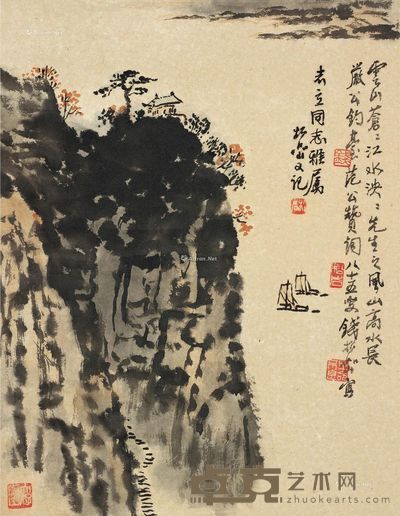 雲山蒼々江水泱々先生之風山高水長
嚴公釣臺范公贊詞八十五叟錢松嵒寫
志立同志雅屬
松嵒又記
卓克艺术网
zhuokearts.com